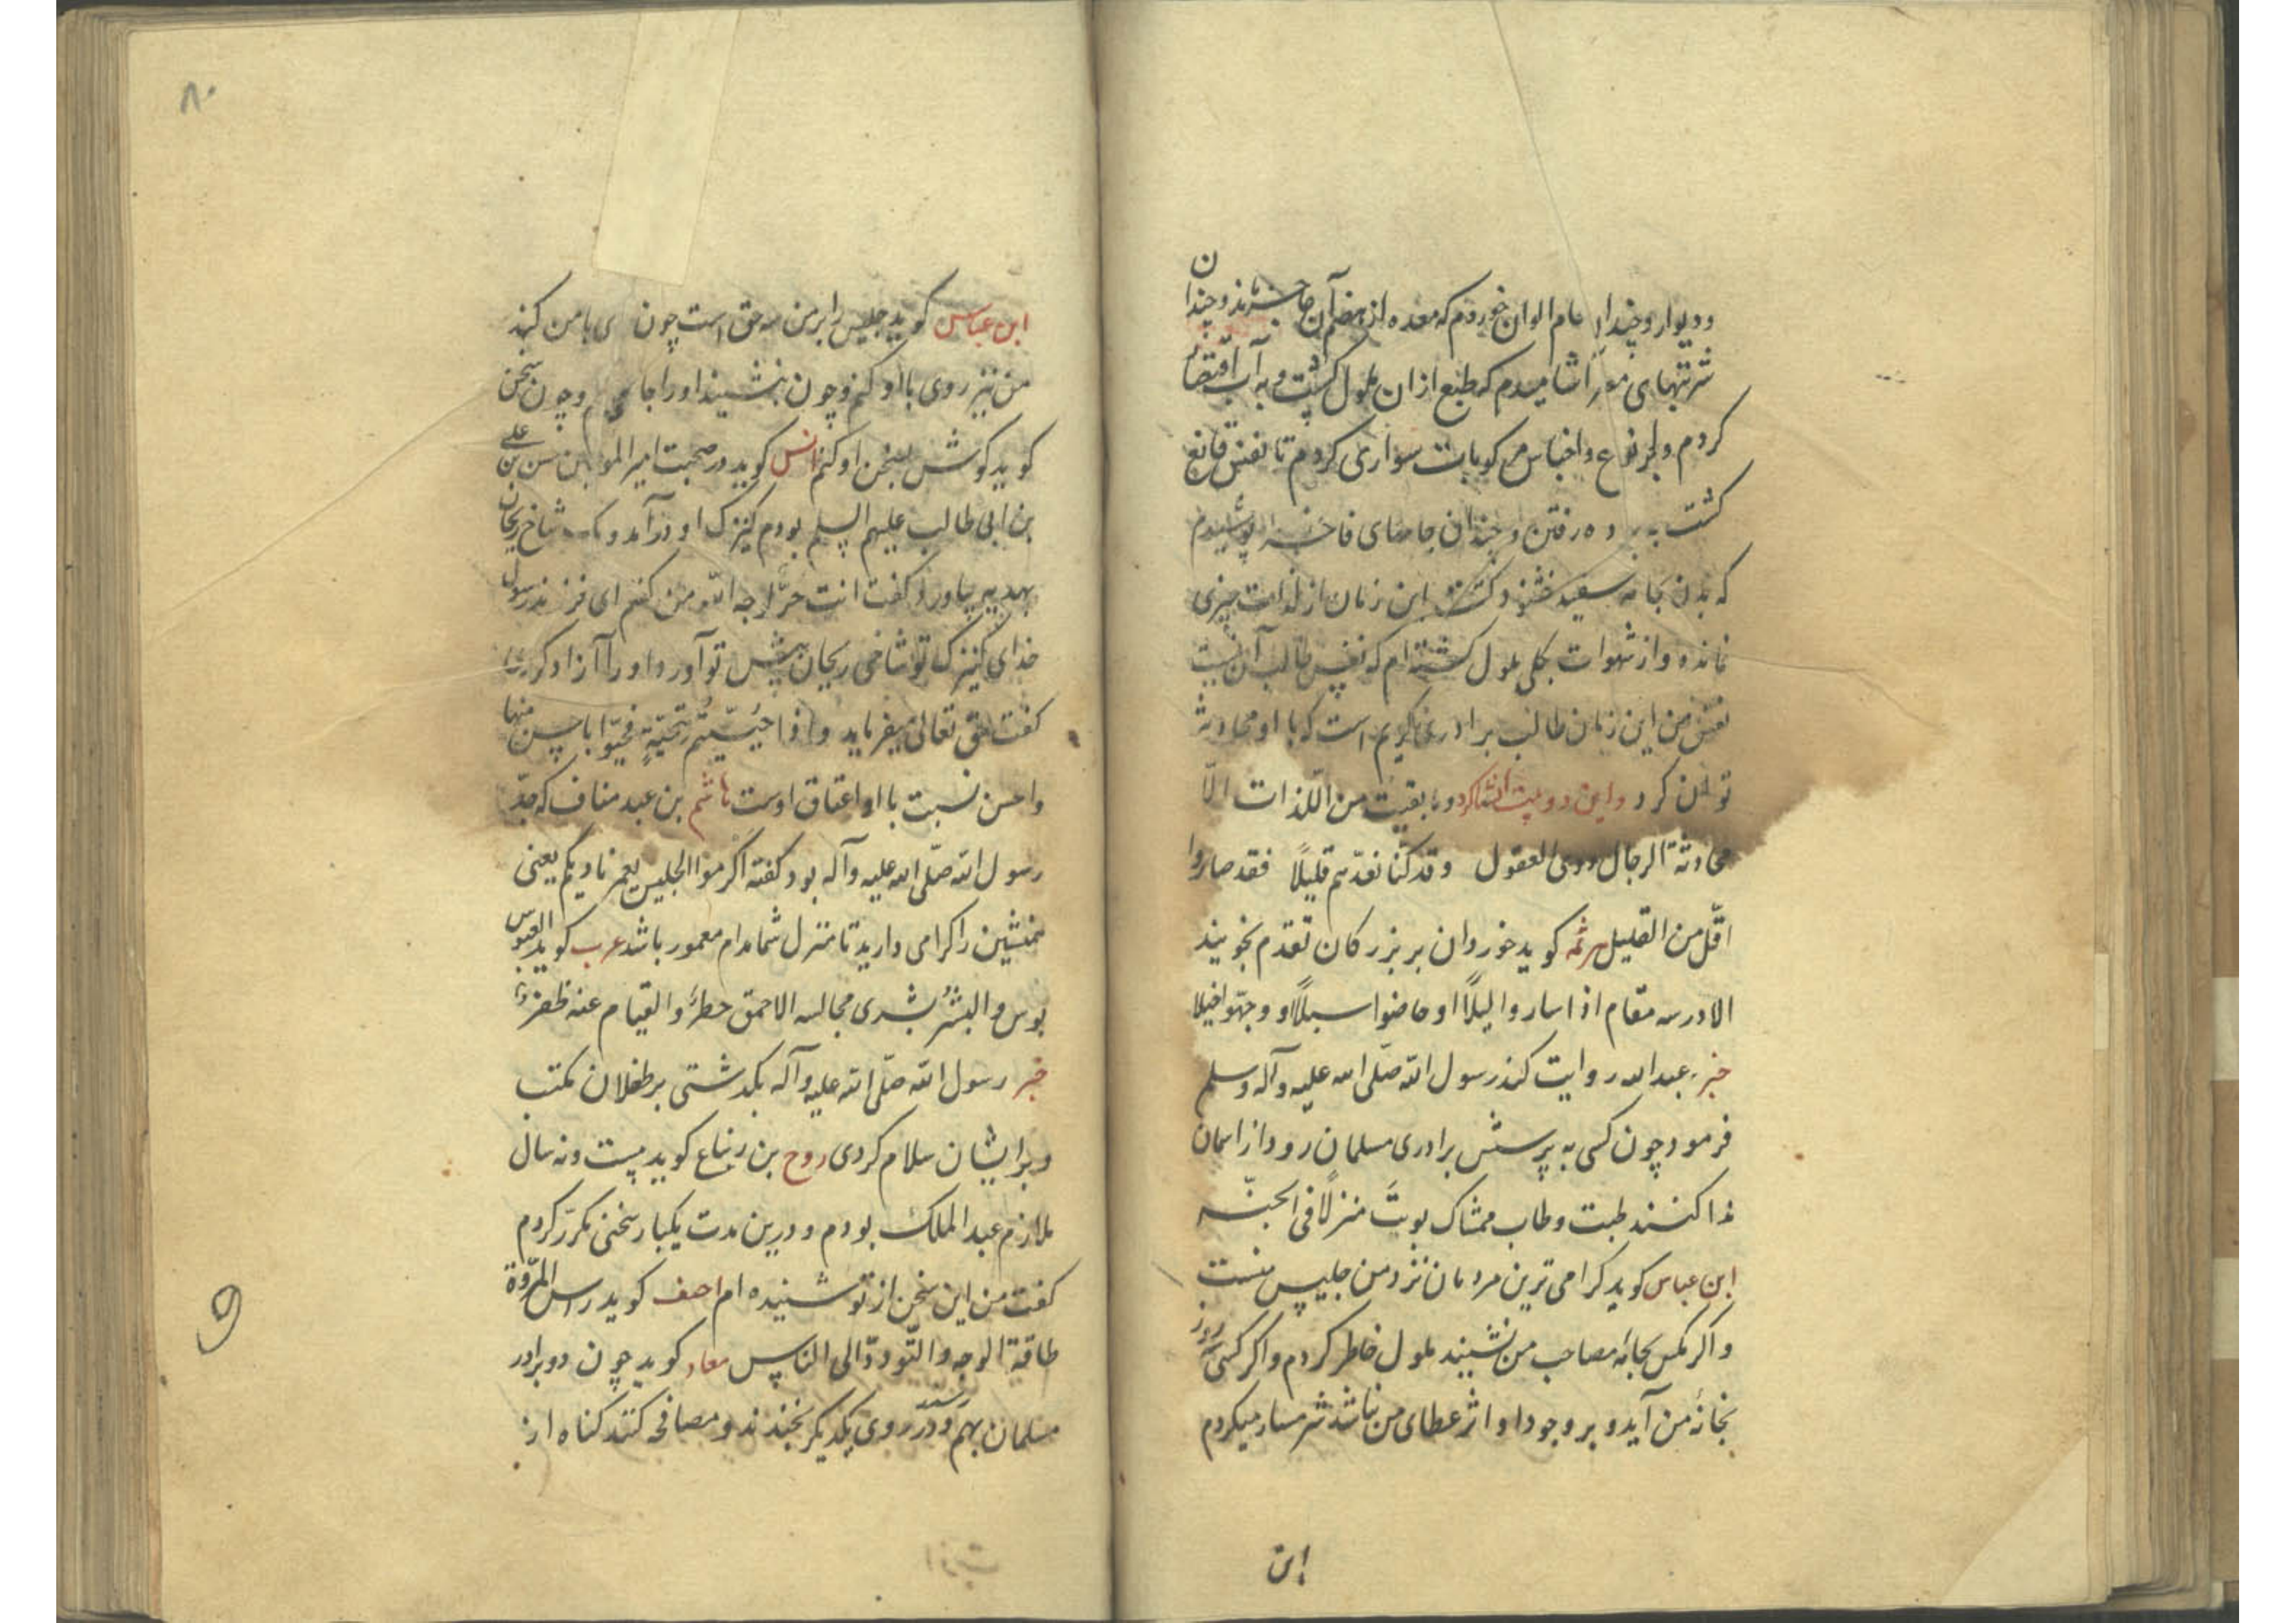 و دیوار و چندان طعام الوان خوردم که معده از هضم آن عاجز شد و چندان
شربتهای آشامیدم که طبع ازان ملول گشت و به آب اقتصار
کردم و انواع و اجناس مرکوبات سواری کردم تا نفس قانع
کشت به رفتن و چندان جامهای فاخر پوشیدم
که بدن بجامه سفید خشنود کشت این زمان از لذات چیزی
نمانده و از شهوات بکلی ملول کشته‌ام که نفس طالب آن نیست
نفس من این زمان طالب برادری کریم است که با او محادثه
توان کرد و این دو بیت انشا کرد وما بقیت من اللذات الّا
محادثة الرجال ذوی العقول وقد کنّا نعدّهم قلیلاً فقد صاروا
اقلّ من القلیل هرثمه کوید خوردان بر بزرکان تقدم نجویند
الا در سه مقام اذا ساروا لیلاً او خاضوا سیلاً او وجهّوا خیلا
خبر عبد الله روایت کند رسول الله صلی الله علیه وآله وسلم
فرمود چون کسی به پرسش برادری مسلمان رود از اسمان
ندا کنند طبت وطاب ممشاک بوبتَ منزلاً فی الجنّه
ابن عباس کوید کرامی ترین مردمان نزد من جلیس منست
و اکر مکس بجامه مصاحب من نشیند ملول خاطر کردم و اکر کسی روز
بخانهٔ من آید و بر وجود او اثر عطای من نباشد شرمسار میکردم
این
۸۰
ابن عباس کوید جلیس را بر من سه حق است چون روی با من کند
من نیز روی با او کنم و چون بنشیند او را جا دهم و چون سخن
کوید کوش بسخن او کنم انس کوید در صحبت امیر المومنین حسن بن علی
بن ابی طالب علیهم السلم بودم کنیزک او درآمد و یک شاخ ریحان
بهدیه بیاورد کفت انت حرّ لوجه الله من کفتم ای فرزند رسول
خدای کنیزک تو شاخی ریحان پیش تو آورد او را آزاد کردی
کفت حق تعالی میفرماید واذا حیّیتم بتحیّةٍ فحیّوا باحسن منها
و احسن نسبت با او اعتاق اوست هاشم بن عبد مناف که جدّ
رسول الله صلّی الله علیه وآله بود کفته اکرموا الجلیس یعمر نادیکم یعنی
همنشین را کرامی دارید تا منزل شما مدام معمور باشد عرب کوید العبوس
بوس والبشر بشری مجالسه الاحمق خطرٌ والقیام عنه ظفرٌ
خبر رسول الله صلّی الله علیه وآله بکدشتی بر طفلان مکتب
و بر ایشان سلام کردی روح بن زنباع کوید بیست و نه سال
ملازم عبد الملک بودم و درین مدت یکبار سخنی مکرّر کردم
کفت من این سخن از تو شنیده‌ام احنف کوید راس المرّوة
طاقة الوجه والتّودد الی الناس معاذ کوید چون دو برادر
مسلمان بهم رسند و در روی یکدیکر بخندند و مصافحه کنند کناه از
9